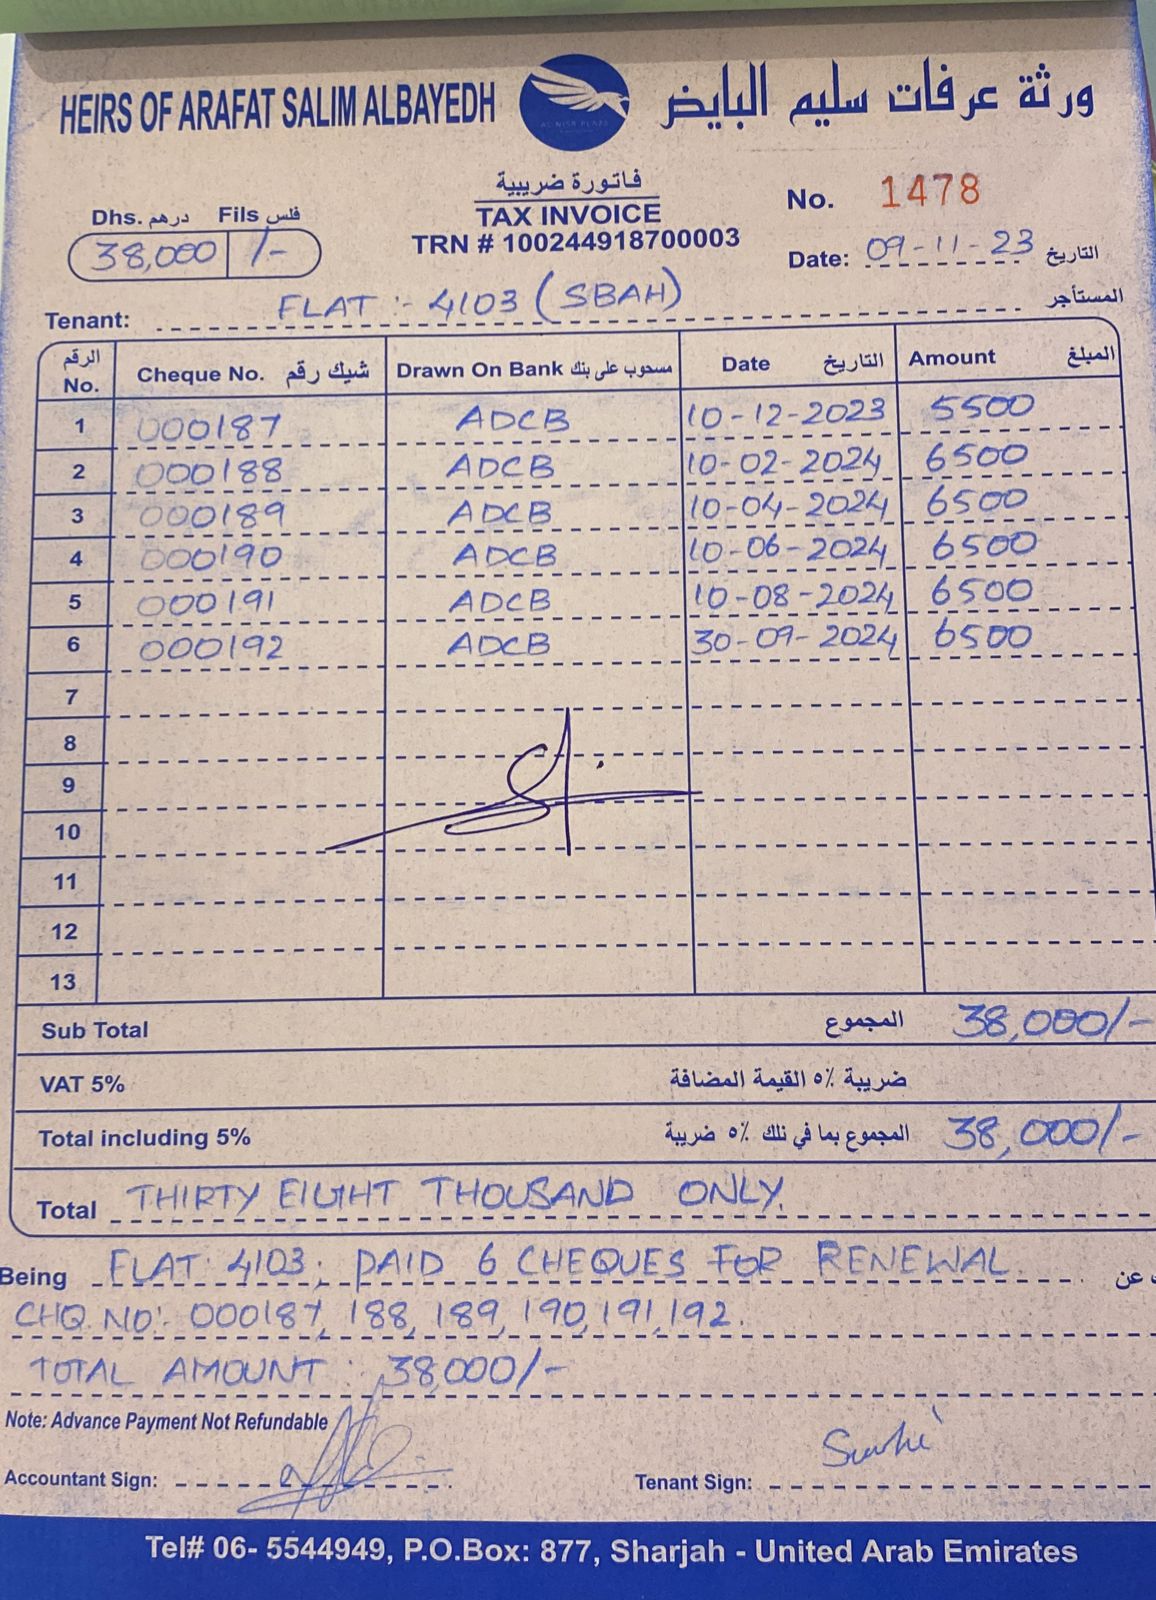 HEIRS OF ARAFAT SALIM ALBAYEDH
ورثة عرفات سليم البايض
AL NISR PLAZA
فاتورة ضريبية
TAX INVOICE
TRN # 100244918700003
No. 1478
Dhs. درهم Fils فلس
38,000 /-
Date: 09-11-23 التاريخ
Tenant: FLAT :- 4103 (SBAH) المستأجر
الرقم No. Cheque No. شيك رقم Drawn On Bank مسحوب على بنك Date التاريخ Amount المبلغ
1 000187 ADCB 10-12-2023 5500
2 000188 ADCB 10-02-2024 6500
3 000189 ADCB 10-04-2024 6500
4 000190 ADCB 10-06-2024 6500
5 000191 ADCB 10-08-2024 6500
6 000192 ADCB 30-09-2024 6500
7
8
9
10
11
12
13
Sub Total المجموع 38,000/-
VAT 5% ضريبة ٥٪ القيمة المضافة
Total including 5% المجموع بما في تلك ٥٪ ضريبة 38,000/-
Total THIRTY EIGHT THOUSAND ONLY.
Being FLAT: 4103; PAID 6 CHEQUES FOR RENEWAL. عن
CHQ NO: 000187, 188, 189, 190, 191, 192.
TOTAL AMOUNT : 38,000/-
Note: Advance Payment Not Refundable
Accountant Sign:
Tenant Sign:
Tel# 06- 5544949, P.O.Box: 877, Sharjah - United Arab Emirates